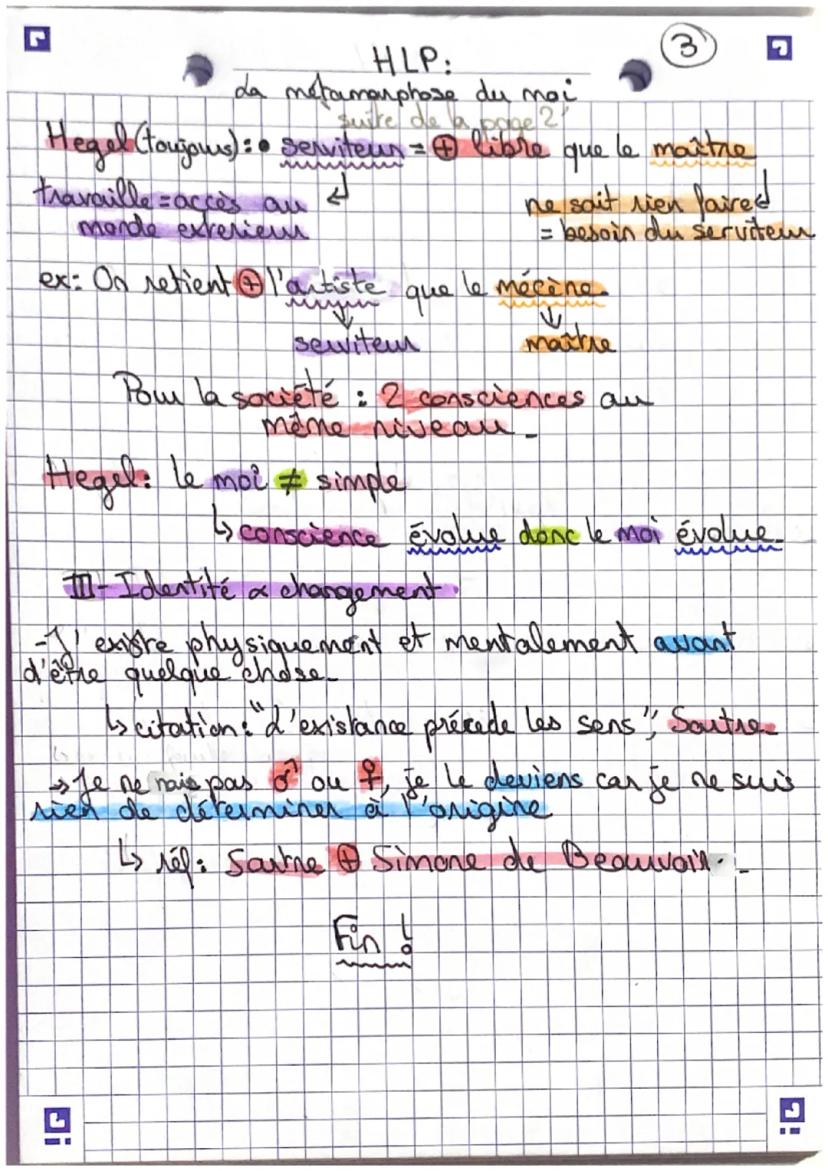 3
HLP:
La métamorphose du moi
suite de la page 2
Hegel (toujours): • serviteur = ⊕ libre que le maître
travaille = accès au
monde exterieur
ne sait rien faire
= besoin du serviteur
ex: On retient ⊕ l'artiste que le mécène.
↓ ↓
serviteur maître
Pour la société : 2 consciences au
même niveau.
Hegel: le moi ≠ simple
↳ conscience évolue donc le moi évolue.
III- Identité & changement
-J'existe physiquement et mentalement avant
d'être quelque chose.
↳ citation: "L'existance précede les sens", Sartre.
→ Je ne nais pas ♂ ou ♀, je le deviens car je ne suis
rien de déterminer à l'origine
↳ réf: Sartre ⊕ Simone de Beauvoir.
Fin !